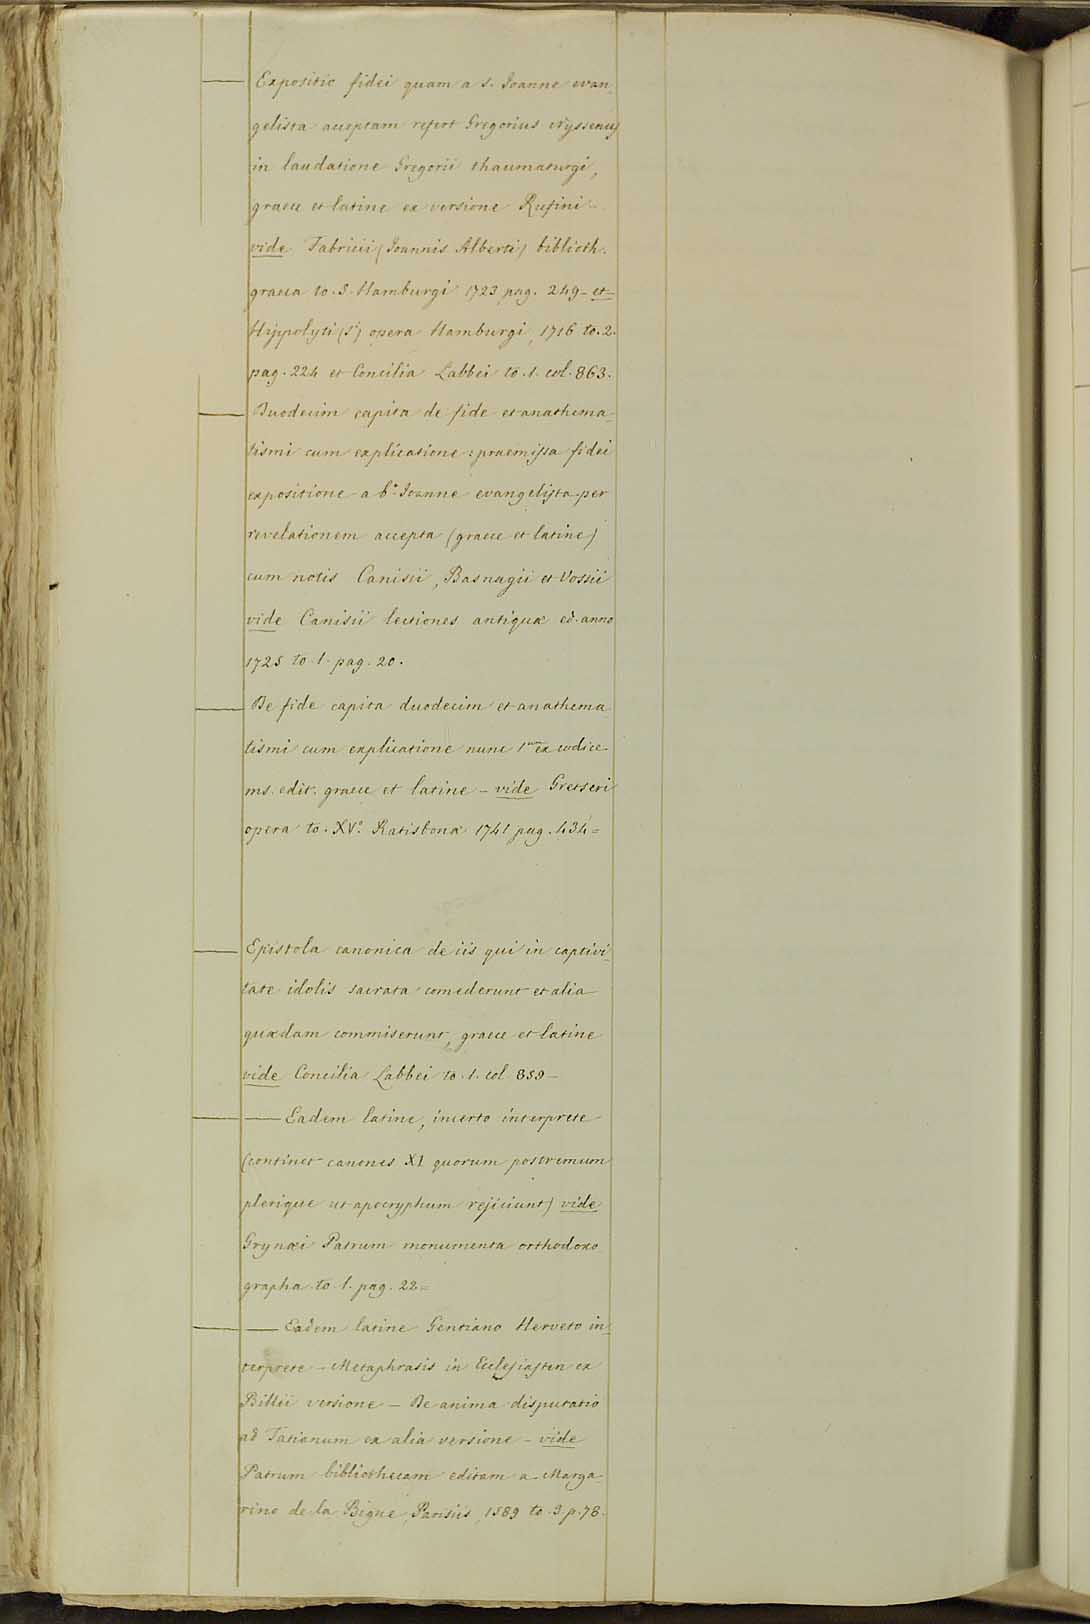 Expositio fidei quam a s. Joanne evan-
gelista acceptam refert Gregorius Nyssenus
in laudatione Gregorii thaumaturgi,
graece et latine ex versione Rufini -
vide Fabricii (Joannis Alberti) biblioth.
graeca to. 5. Hamburgi 1723 pag. 249 - et
Hippolyti (Sti) opera Hamburgi, 1716 to. 2.
pag. 224 et Concilia Labbei to. 1. col. 863.
Duodecim capita de fide et anathema-
tismi cum explicatione: praemissa fidei
expositione a bo. Joanne evangelista per
revelationem accepta (graece et latine)
cum notis Canisii, Basnagii et Vossii
vide Canisii lectiones antiquæ ed. anno
1725 to. 1. pag. 20.
De fide capita duodecim et anathema-
tismi cum explicatione nunc 1um ex codice
ms. edit. graece et latine - vide Gretseri
opera to. XVo. Ratisbonæ 1741 pag. 434 =
Epistola canonica de iis qui in captivi-
tate idolis sacrata comederunt et alia
quædam commiserunt, graece et latine
vide Concilia Labbei to. 1. col. 859 -
— Eadem latine, incerto interprete
(continet canones XI quorum postremum
plerique ut apocryphum rejiciunt) vide
Grynæi Patrum monumenta orthodoxo
grapha to. 1. pag. 22 =
— Eadem latine Gentiano Herveto in-
terprete - Metaphrasis in Ecclesiasten ex
Billii versione - De anima disputatio
ad Tatianum ex alia versione - vide
Patrum bibliothecam editam a Marga-
rino de la Bigne, Parisiis, 1589 to. 3. p. 78.